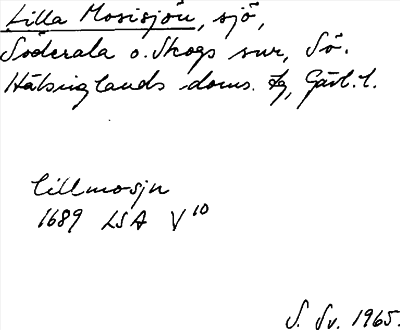 Lilla Mosisjön, sjö,
Söderala o. Skogs snr, Sö.
Hälsinglands doms. tg, Gävl. l.
lillmosjn
1689 LSA V10
S. Sv. 1965.